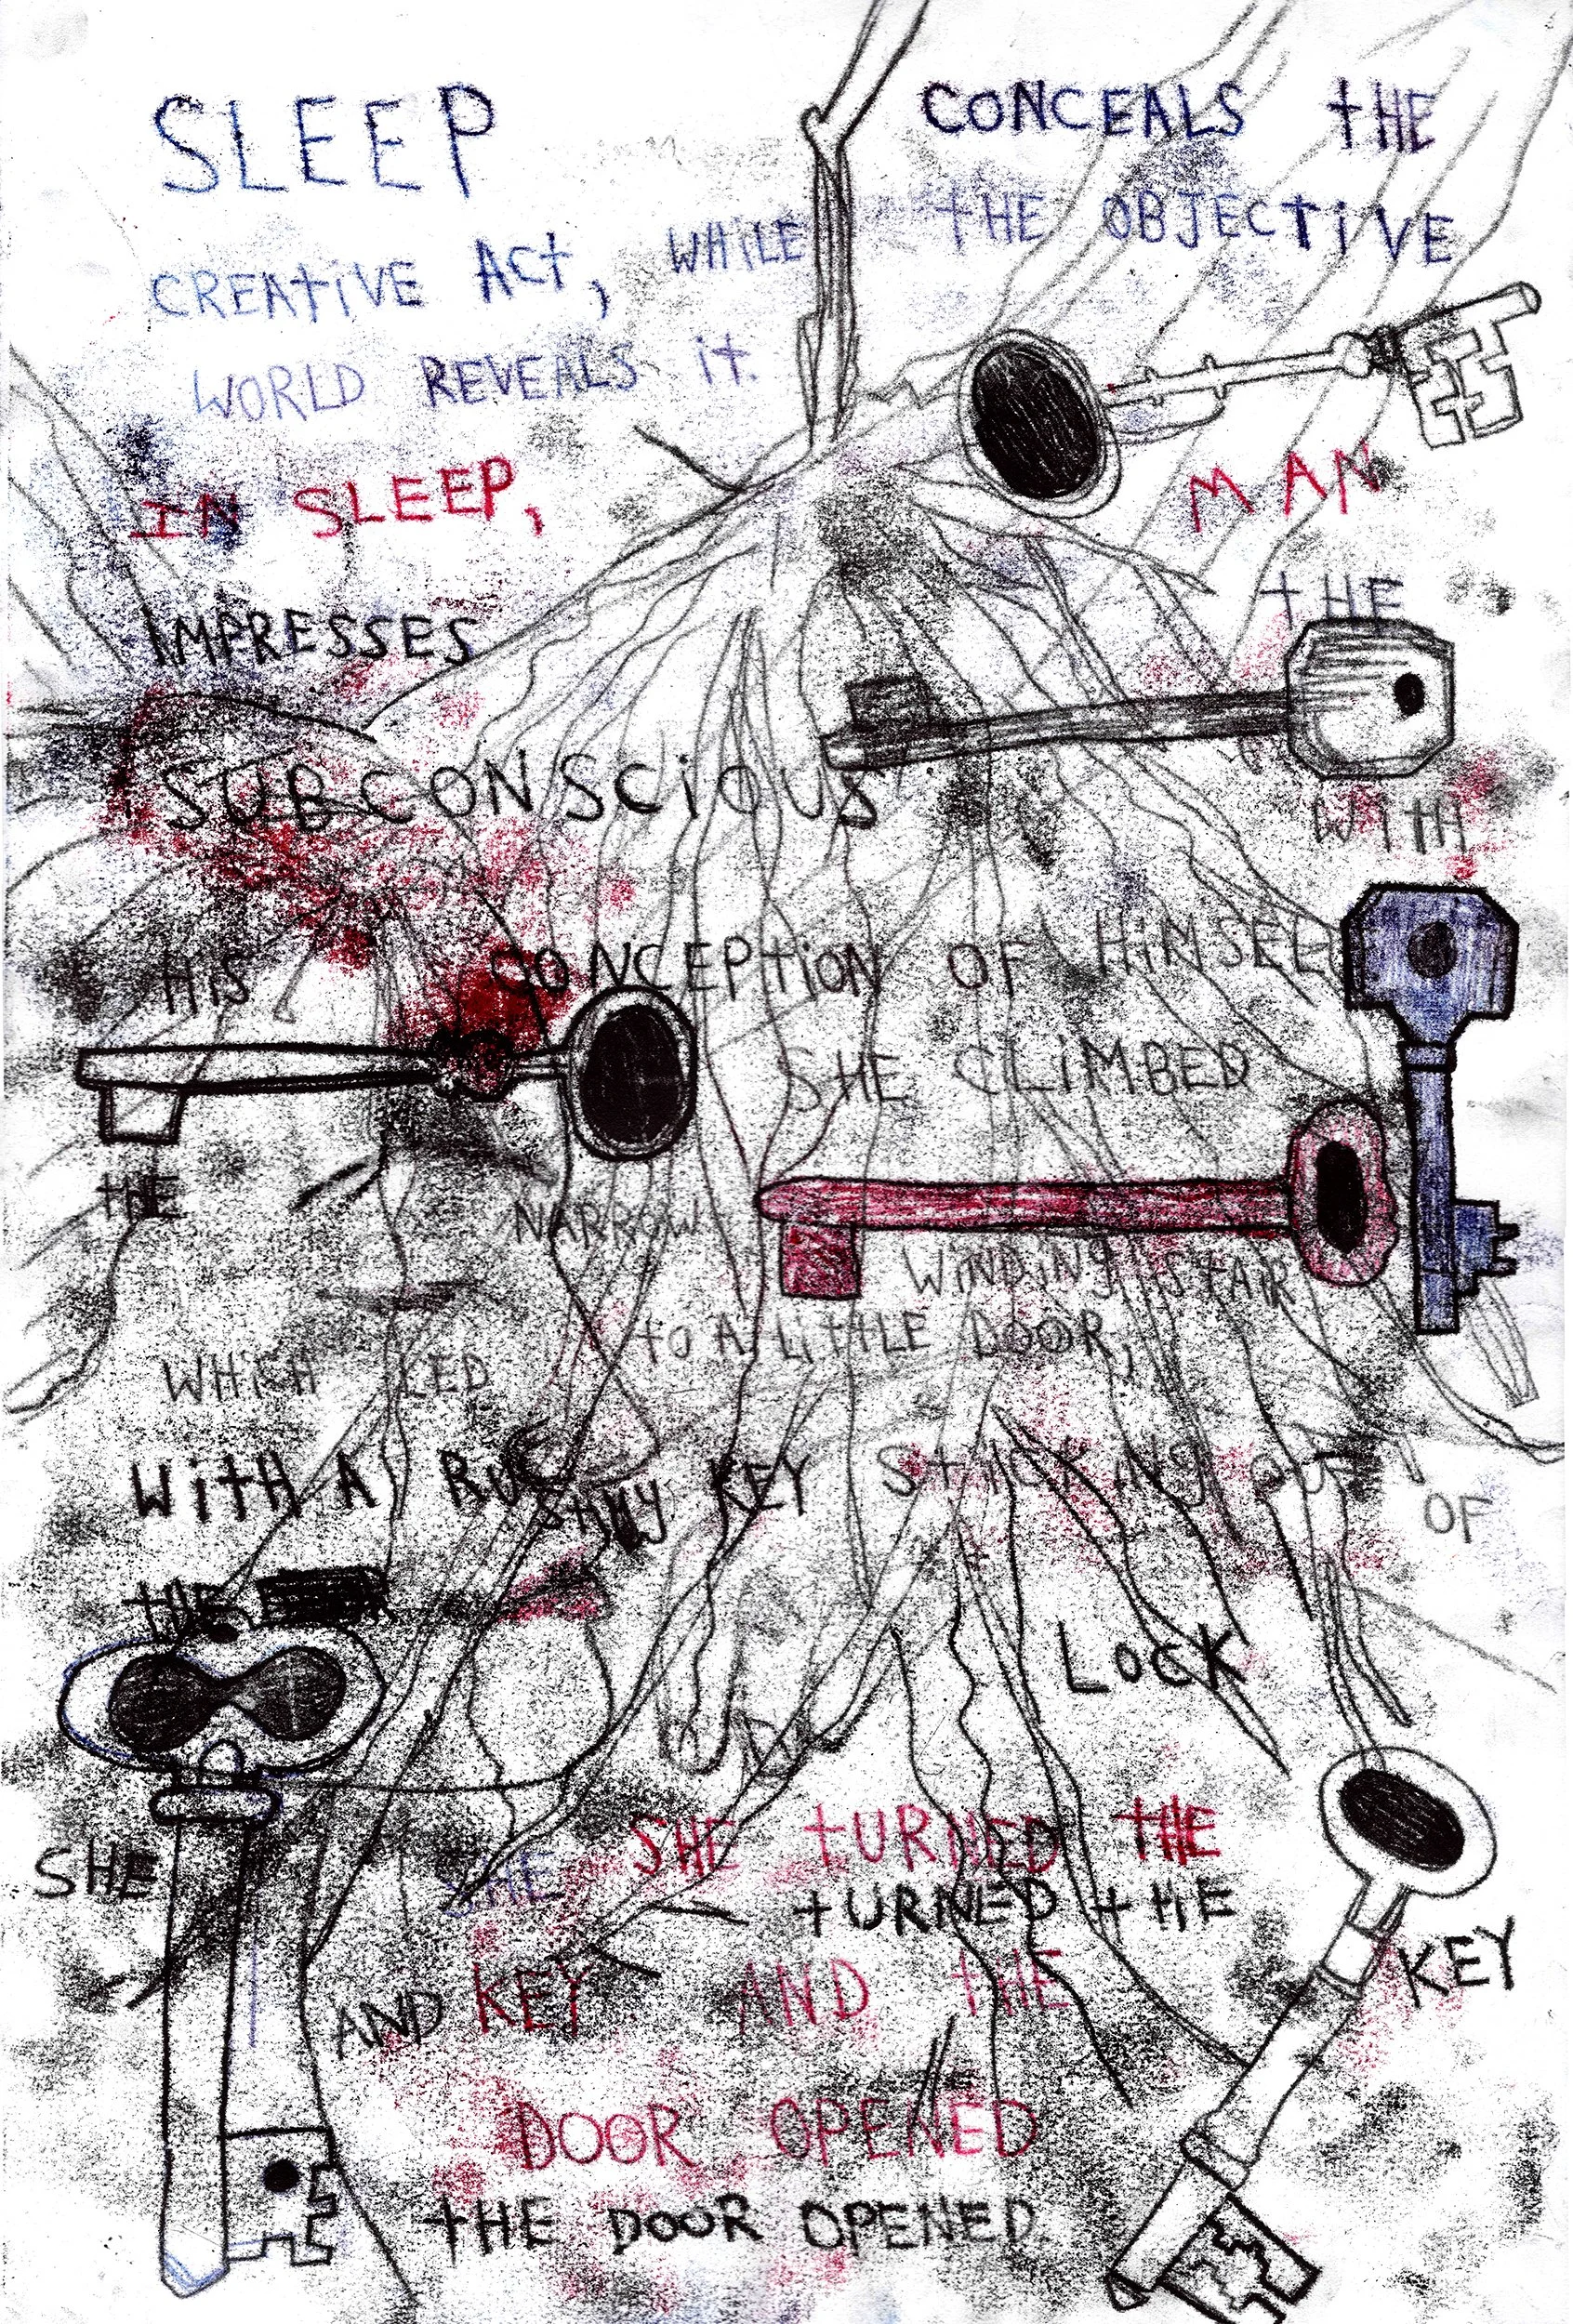 SLEEP CONCEALS THE
CREATIVE ACT, WHILE THE OBJECTIVE
WORLD REVEALS IT.
IN SLEEP, MAN
IMPRESSES THE
SUBCONSCIOUS WITH
HIS CONCEPTION OF HIMSELF
SHE CLIMBED
THE NARROW WINDING STAIR
WHICH LED TO A LITTLE DOOR,
WITH A RUSTY KEY STICKING OUT OF
THE LOCK
SHE SHE SHE TURNED THE
TURNED THE
KEY AND THE KEY
AND
DOOR OPENED
THE DOOR OPENED.